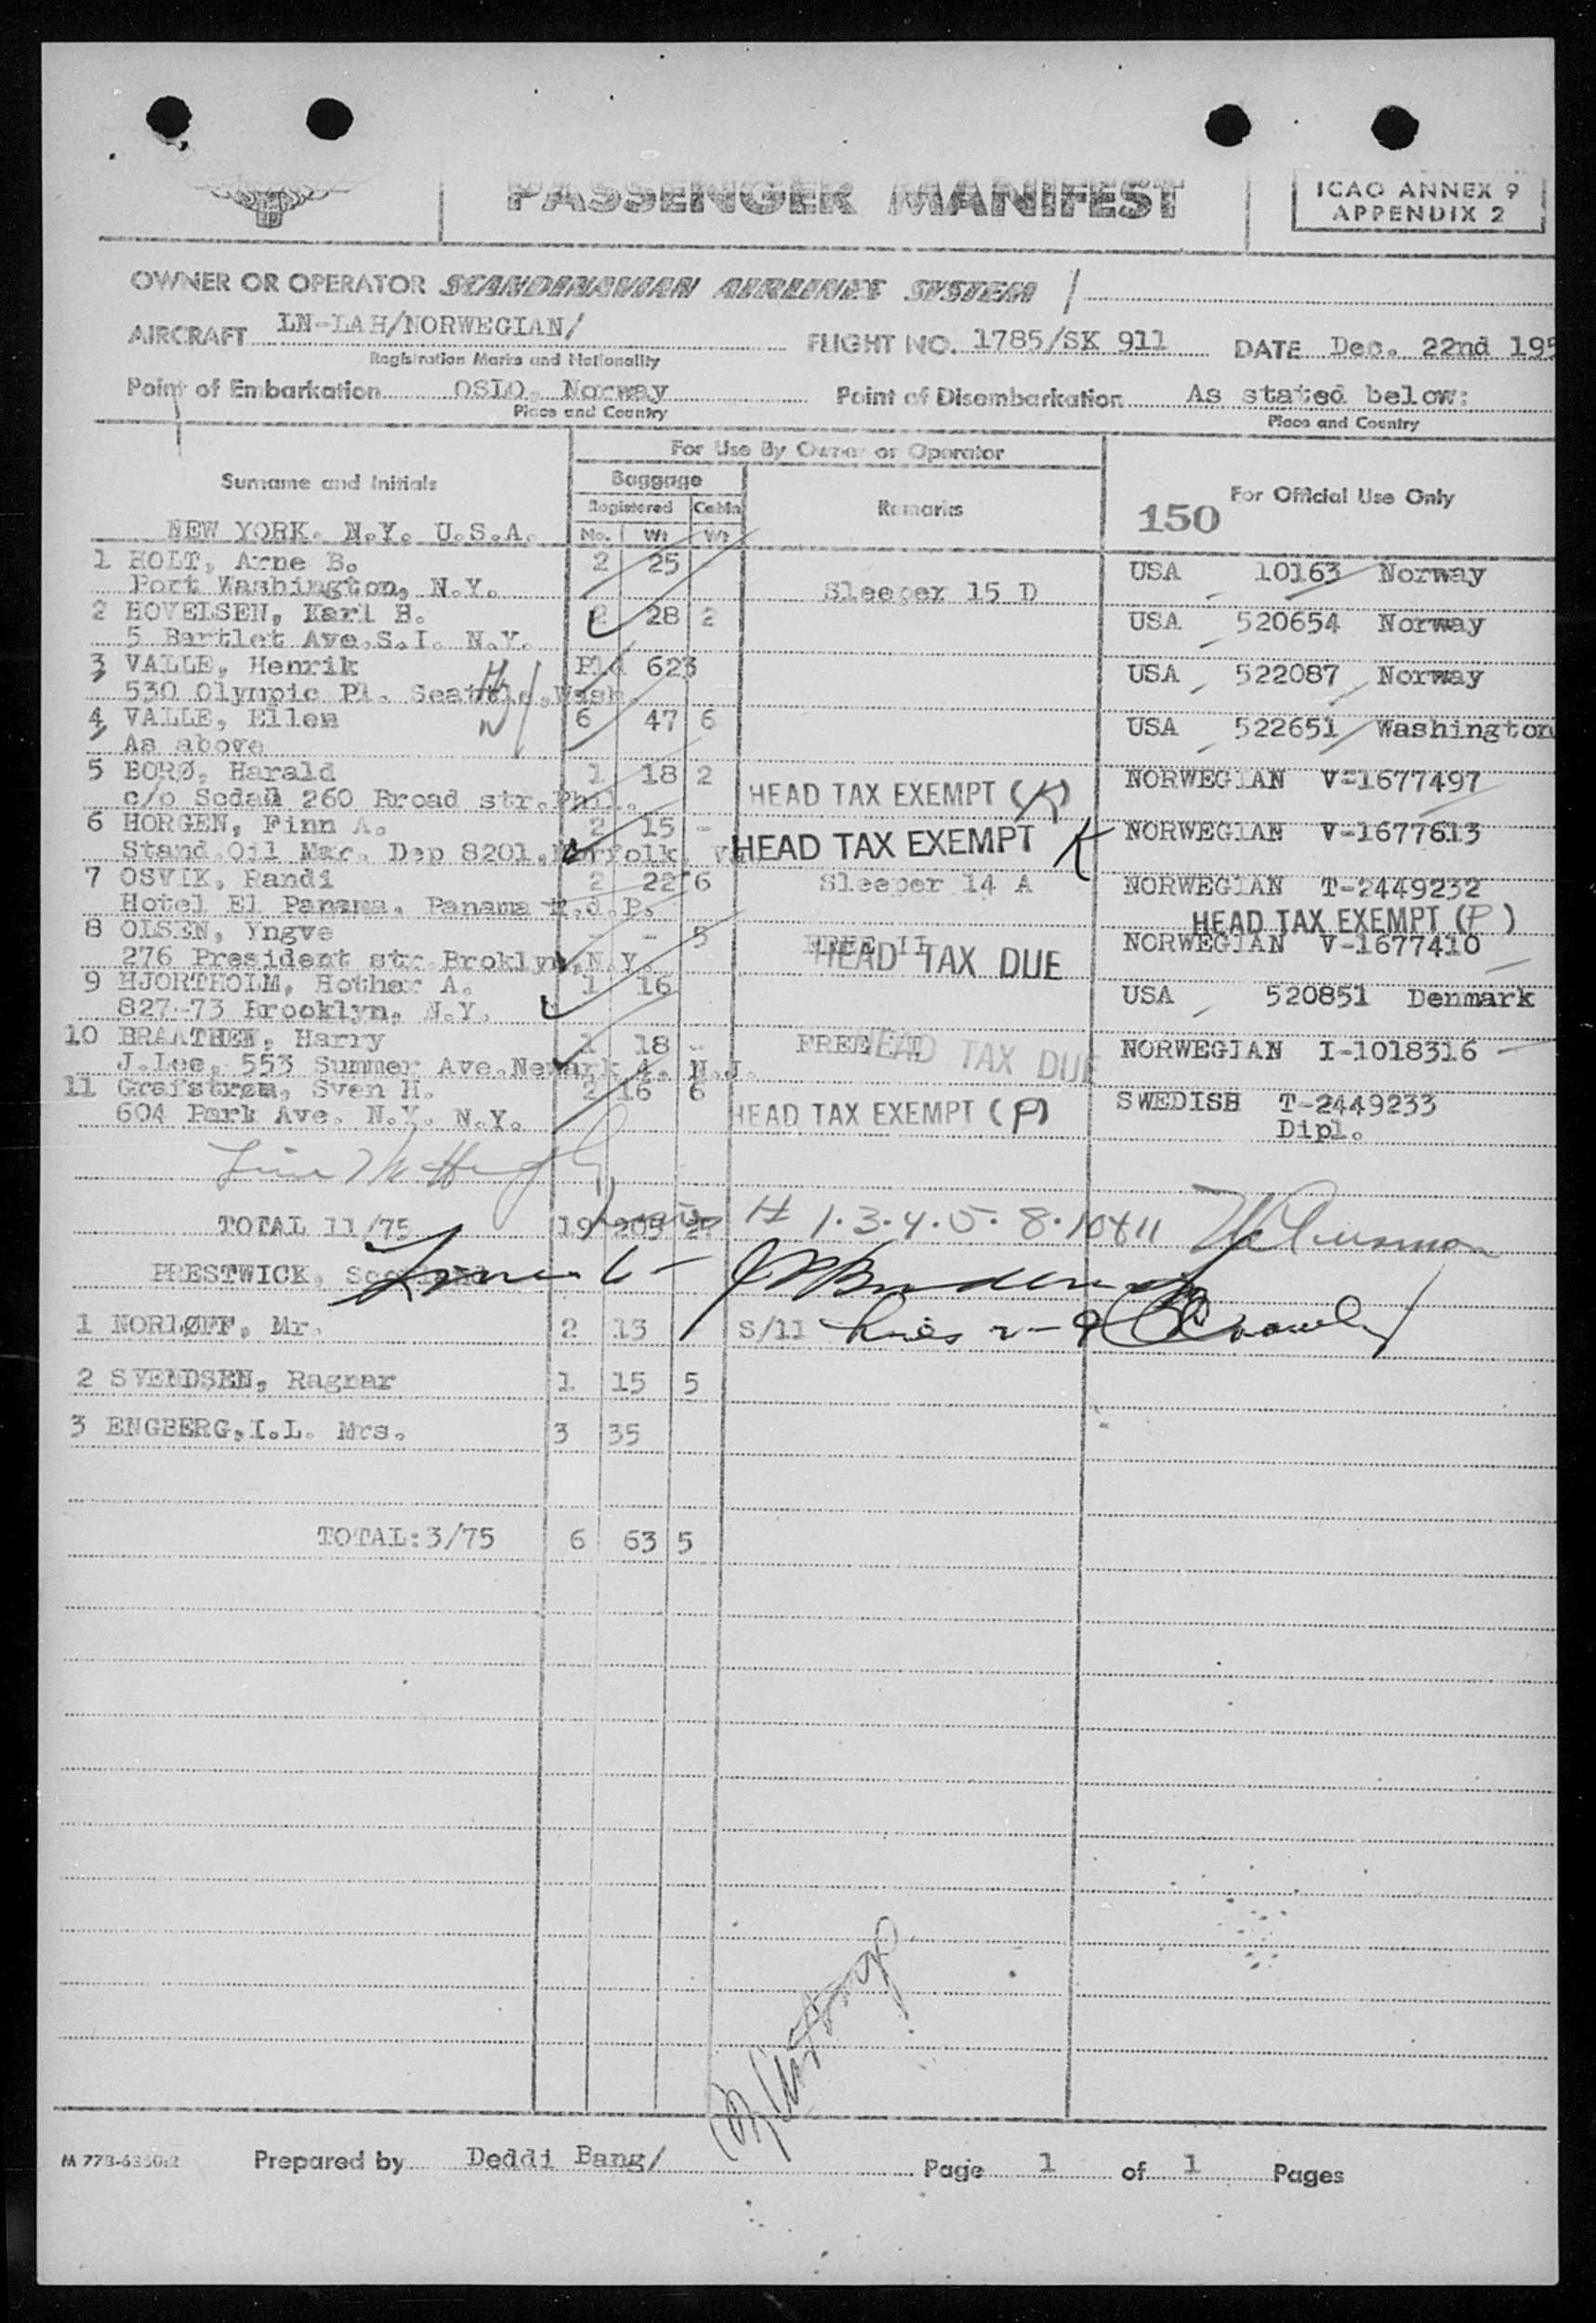 PASSENGER MANIFEST
ICAO ANNEX 9
APPENDIX 2
OWNER OR OPERATOR SCANDINAVIAN AIRLINES SYSTEM /
AIRCRAFT LN-LAH/NORWEGIAN/ FLIGHT NO. 1785/SK 911 DATE Dec. 22nd 195
Registration Marks and Nationality
Point of Embarkation OSLO, Norway Point of Disembarkation As stated below:
Place and Country Place and Country
For Use By Owner or Operator
Surname and Initials Baggage Remarks For Official Use Only
Registered Cabin 150
NEW YORK. N.Y. U.S.A. No. Wt Wt
1 HOLT, Arne B. 2 25 USA 10163 Norway
Port Washington, N.Y. Sleeper 15 D
2 HOVELSEN, Karl B. 2 28 2 USA 520654 Norway
5 Bartlet Ave.S.I. N.Y.
3 VALLE, Henrik Pld 623 USA 522087 Norway
530 Olympic Pl. Seattle,Wash
4 VALLE, Ellen 6 47 6 USA 522651 Washington
As above
5 BORØ, Harald 1 18 2 NORWEGIAN V-1677497
c/o Sedam 260 Broad str.Phil. HEAD TAX EXEMPT (K)
6 HORGEN, Finn A. 2 15 - HEAD TAX EXEMPT K NORWEGIAN V-1677613
Stand.Oil Mar. Dep 8201,Norfolk, Va
7 OSVIK, Randi 2 22 6 Sleeper 14 A NORWEGIAN T-2449232
Hotel El Panama, Panama R.d.P. HEAD TAX EXEMPT (P)
8 OLSEN, Yngve - - 5 FREE II NORWEGIAN V-1677410
276 President str.Broklyn,N.Y. HEAD TAX DUE
9 HJORTHOLM, Hothar A. 1 16 USA 520851 Denmark
827-73 Brooklyn, N.Y.
10 BRAATHEN, Harry 1 18 - FREE HEAD TAX DUE NORWEGIAN I-1018316
J.Lee, 553 Summer Ave.Newark 4. N.J.
11 Grafstrøm, Sven H. 2 16 6 SWEDISH T-2449233
604 Park Ave. N.Y. N.Y. HEAD TAX EXEMPT (P) Dipl.
TOTAL 11/75 19 205 27 H 1.3.4.5.8.10&11
PRESTWICK, Scotland
1 NORLØFF, Mr. 2 13 S/11
2 SVENDSEN, Ragnar 1 15 5
3 ENGBERG,I.L. Mrs. 3 35
TOTAL:3/75 6 63 5
Prepared by Deddi Bang/ Page 1 of 1 Pages